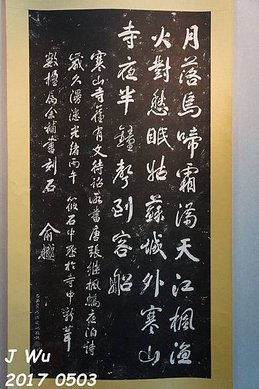 月落烏啼霜滿天江楓漁
火對愁眠姑蘇城外寒山
寺夜半鐘聲到客船
寒山寺舊有文待詔所書唐張繼楓橋夜泊詩
歲久漫漶光緒丙午筱石中丞於寺中新葺
數楹屬余補書刻石
俞樾
J Wu
2017 0503